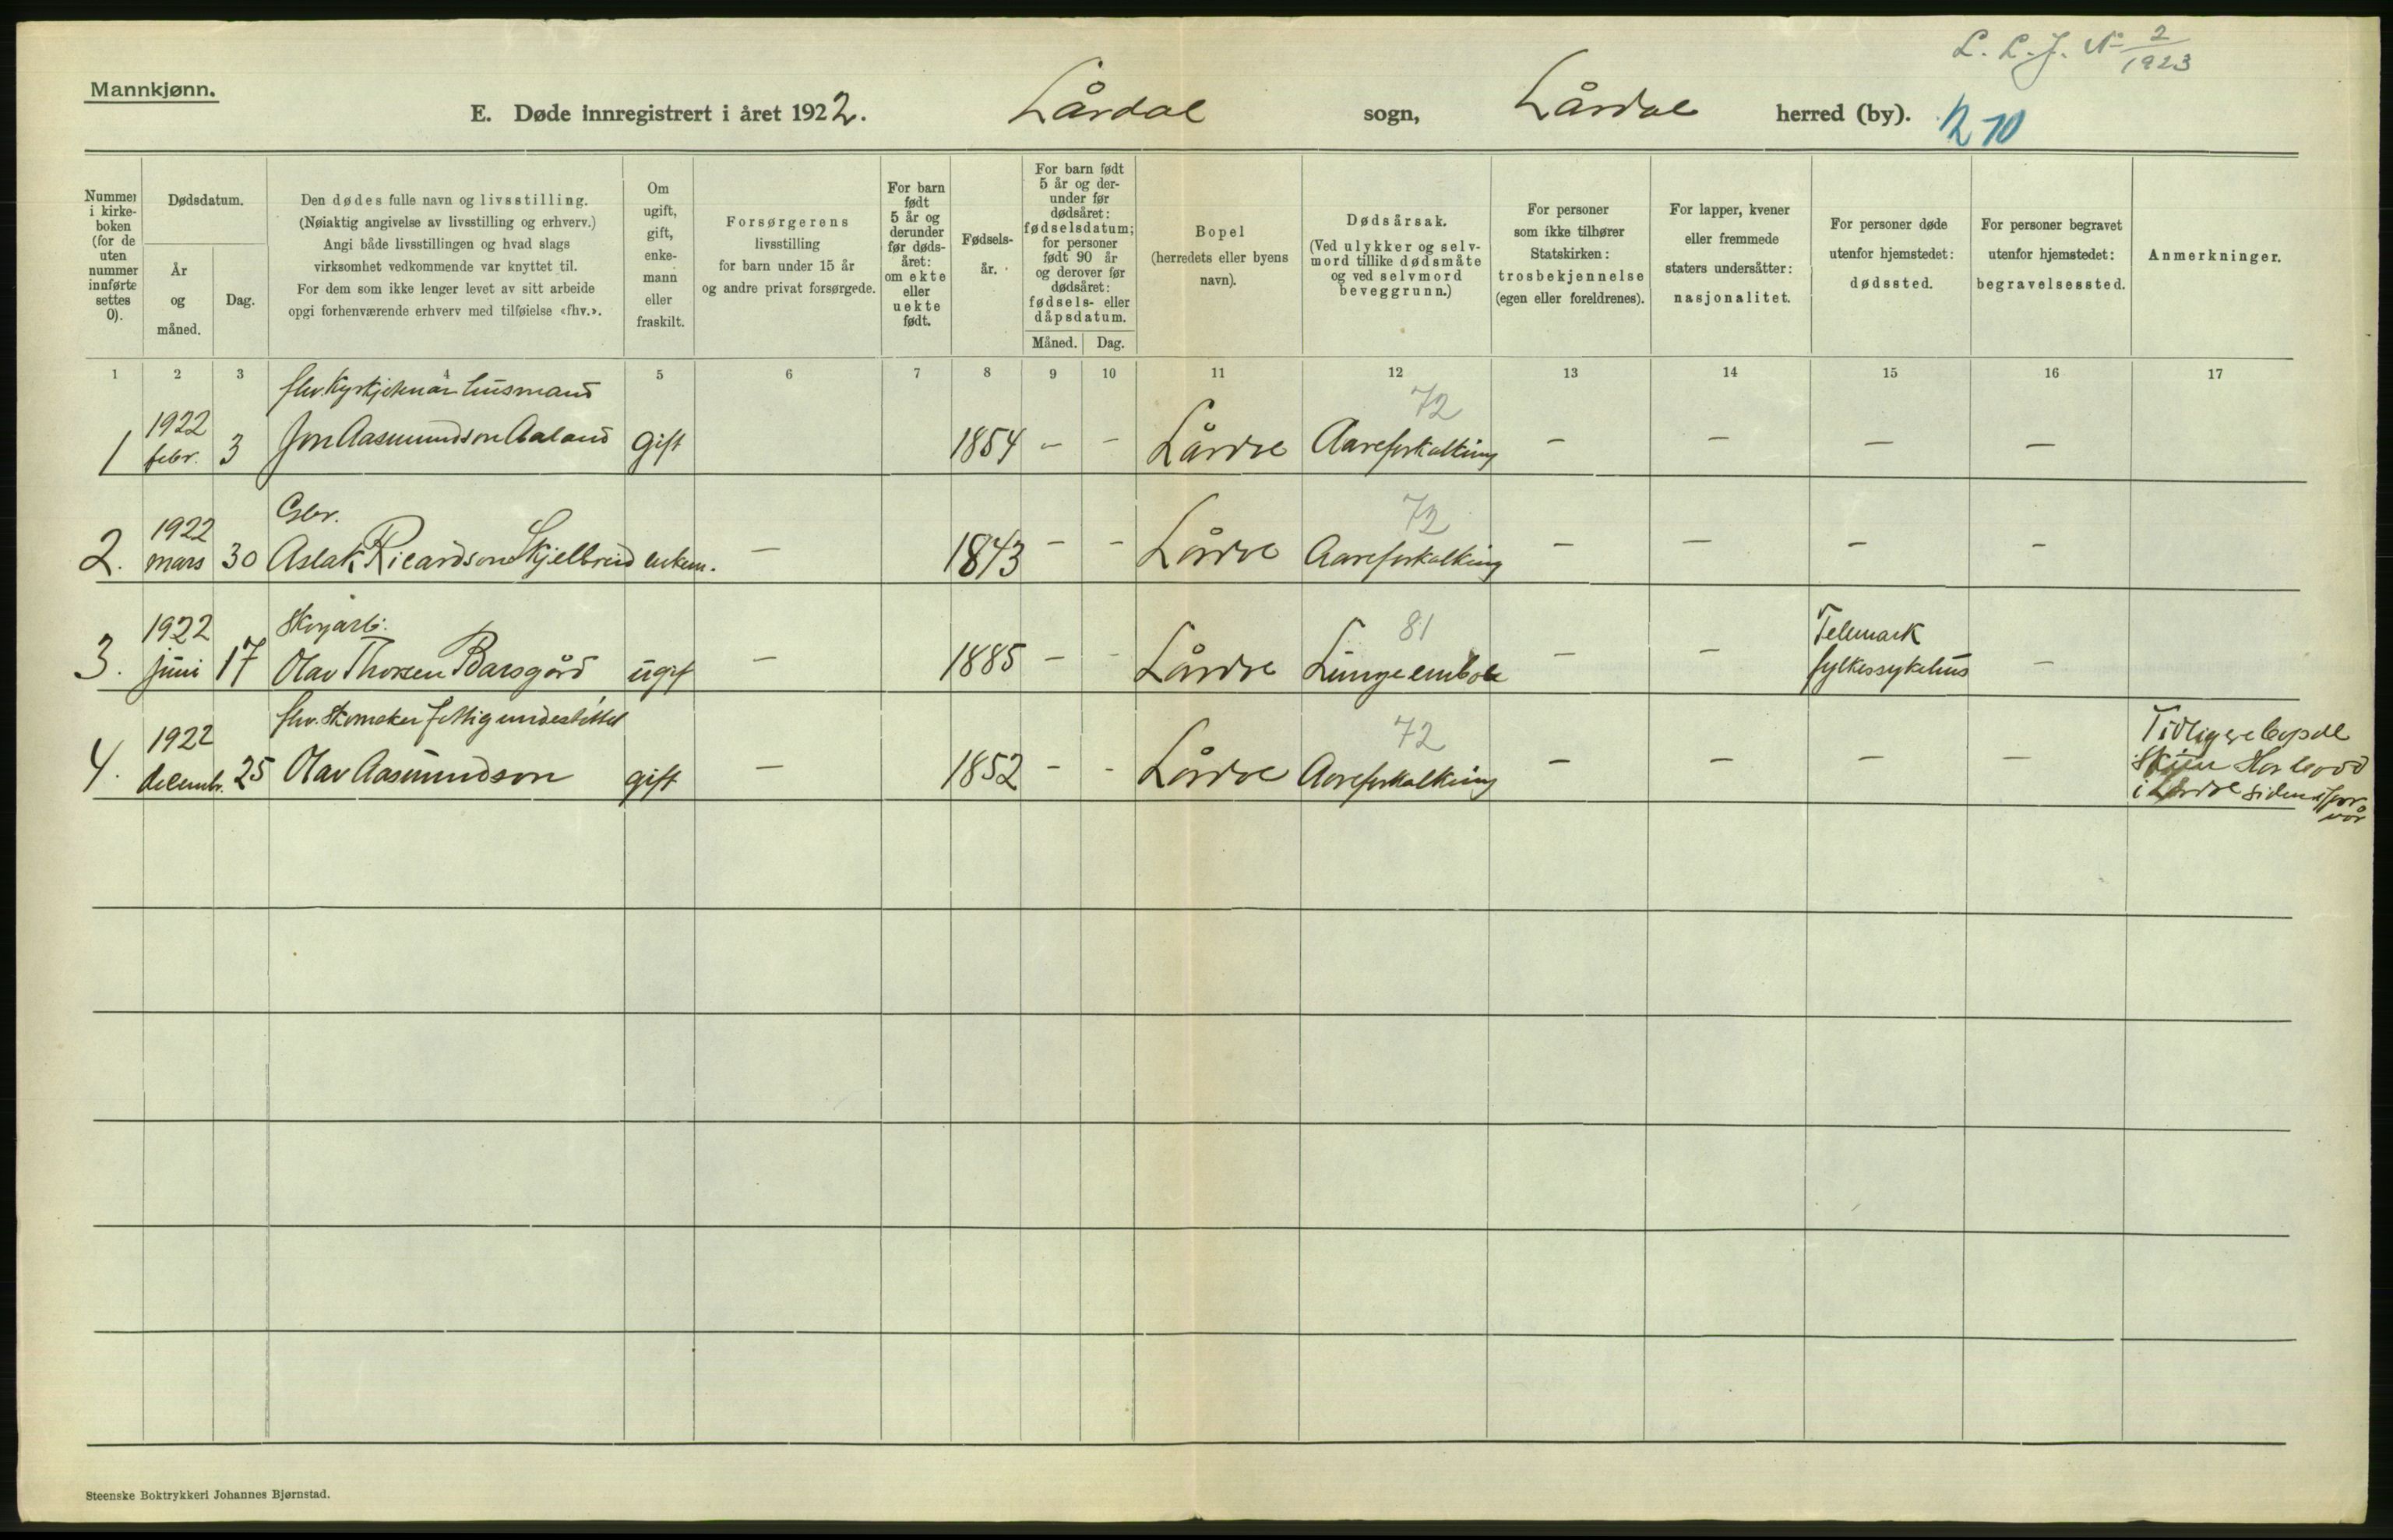 L. L. J. № 2/1923
Mannkjønn.
E. Døde innregistrert i året 1922. Lårdal sogn, Lårdal herred (by).
Nummer i kirke-boken (for de uten nummer innførte settes 0).
Dødsdatum.
År og måned.
Dag.
Den dødes fulle navn og livsstilling.
(Nøiaktig angivelse av livsstilling og erhverv.)
Angi både livsstillingen og hvad slags
virksomhet vedkommende var knyttet til.
For dem som ikke lenger levet av sitt arbeide
opgi forhenværende erhverv med tilføielse «fhv.».
Om ugift, gift, enke-mann eller fraskilt.
Forsørgerens
livsstilling
for barn under 15 år
og andre privat forsørgede.
For barn født 5 år og derunder før døds-året: om ekte eller uekte født.
Fødsels-år.
For barn født 5 år og der-under før dødsåret: fødselsdatum; for personer født 90 år og derover før dødsåret: fødsels- eller dåpsdatum.
Måned. Dag.
Bopel
(herredets eller byens
navn).
Dødsårsak.
(Ved ulykker og selv-
mord tillike dødsmåte
og ved selvmord
beveggrunn.)
For personer
som ikke tilhører
Statskirken:
trosbekjennelse
(egen eller foreldrenes).
For lapper, kvener
eller fremmede
staters undersåtter:
nasjonalitet.
For personer døde
utenfor hjemstedet:
dødssted.
For personer begravet
utenfor hjemstedet:
begravelsessted.
Anmerkninger.
1 2 3 4 5 6 7 8 9 10 11 12 13 14 15 16 17
fhv. Kyrkjetenar husmand 72
1 1922 febr. 3 Jon Aasmundson Aaland gift 1854 - - Lårdal Aareforkalking - - - -
Gbr. 72
2. 1922 mars 30 Aslak Ricardson Skjelbreid enkem. - 1843 - - Lårdal Aareforkalking - - - -
Skogarb. 81
3. 1922 juni 17 Olav Thorsen Barsgård ugift - 1885 - - Lårdal Lungeembole - - Telemark fylkessykehus -
fhv. Skomaker fattigunderstøttet 72
4. 1922 decembr. 25 Olav Aasmundson gift - 1852 - - Lårdal Aareforkalking - - - - Tidligere bopel
Skien Har bodd
i Lårdal siden ifjor
vår
Steenske Boktrykkeri Johannes Bjørnstad.